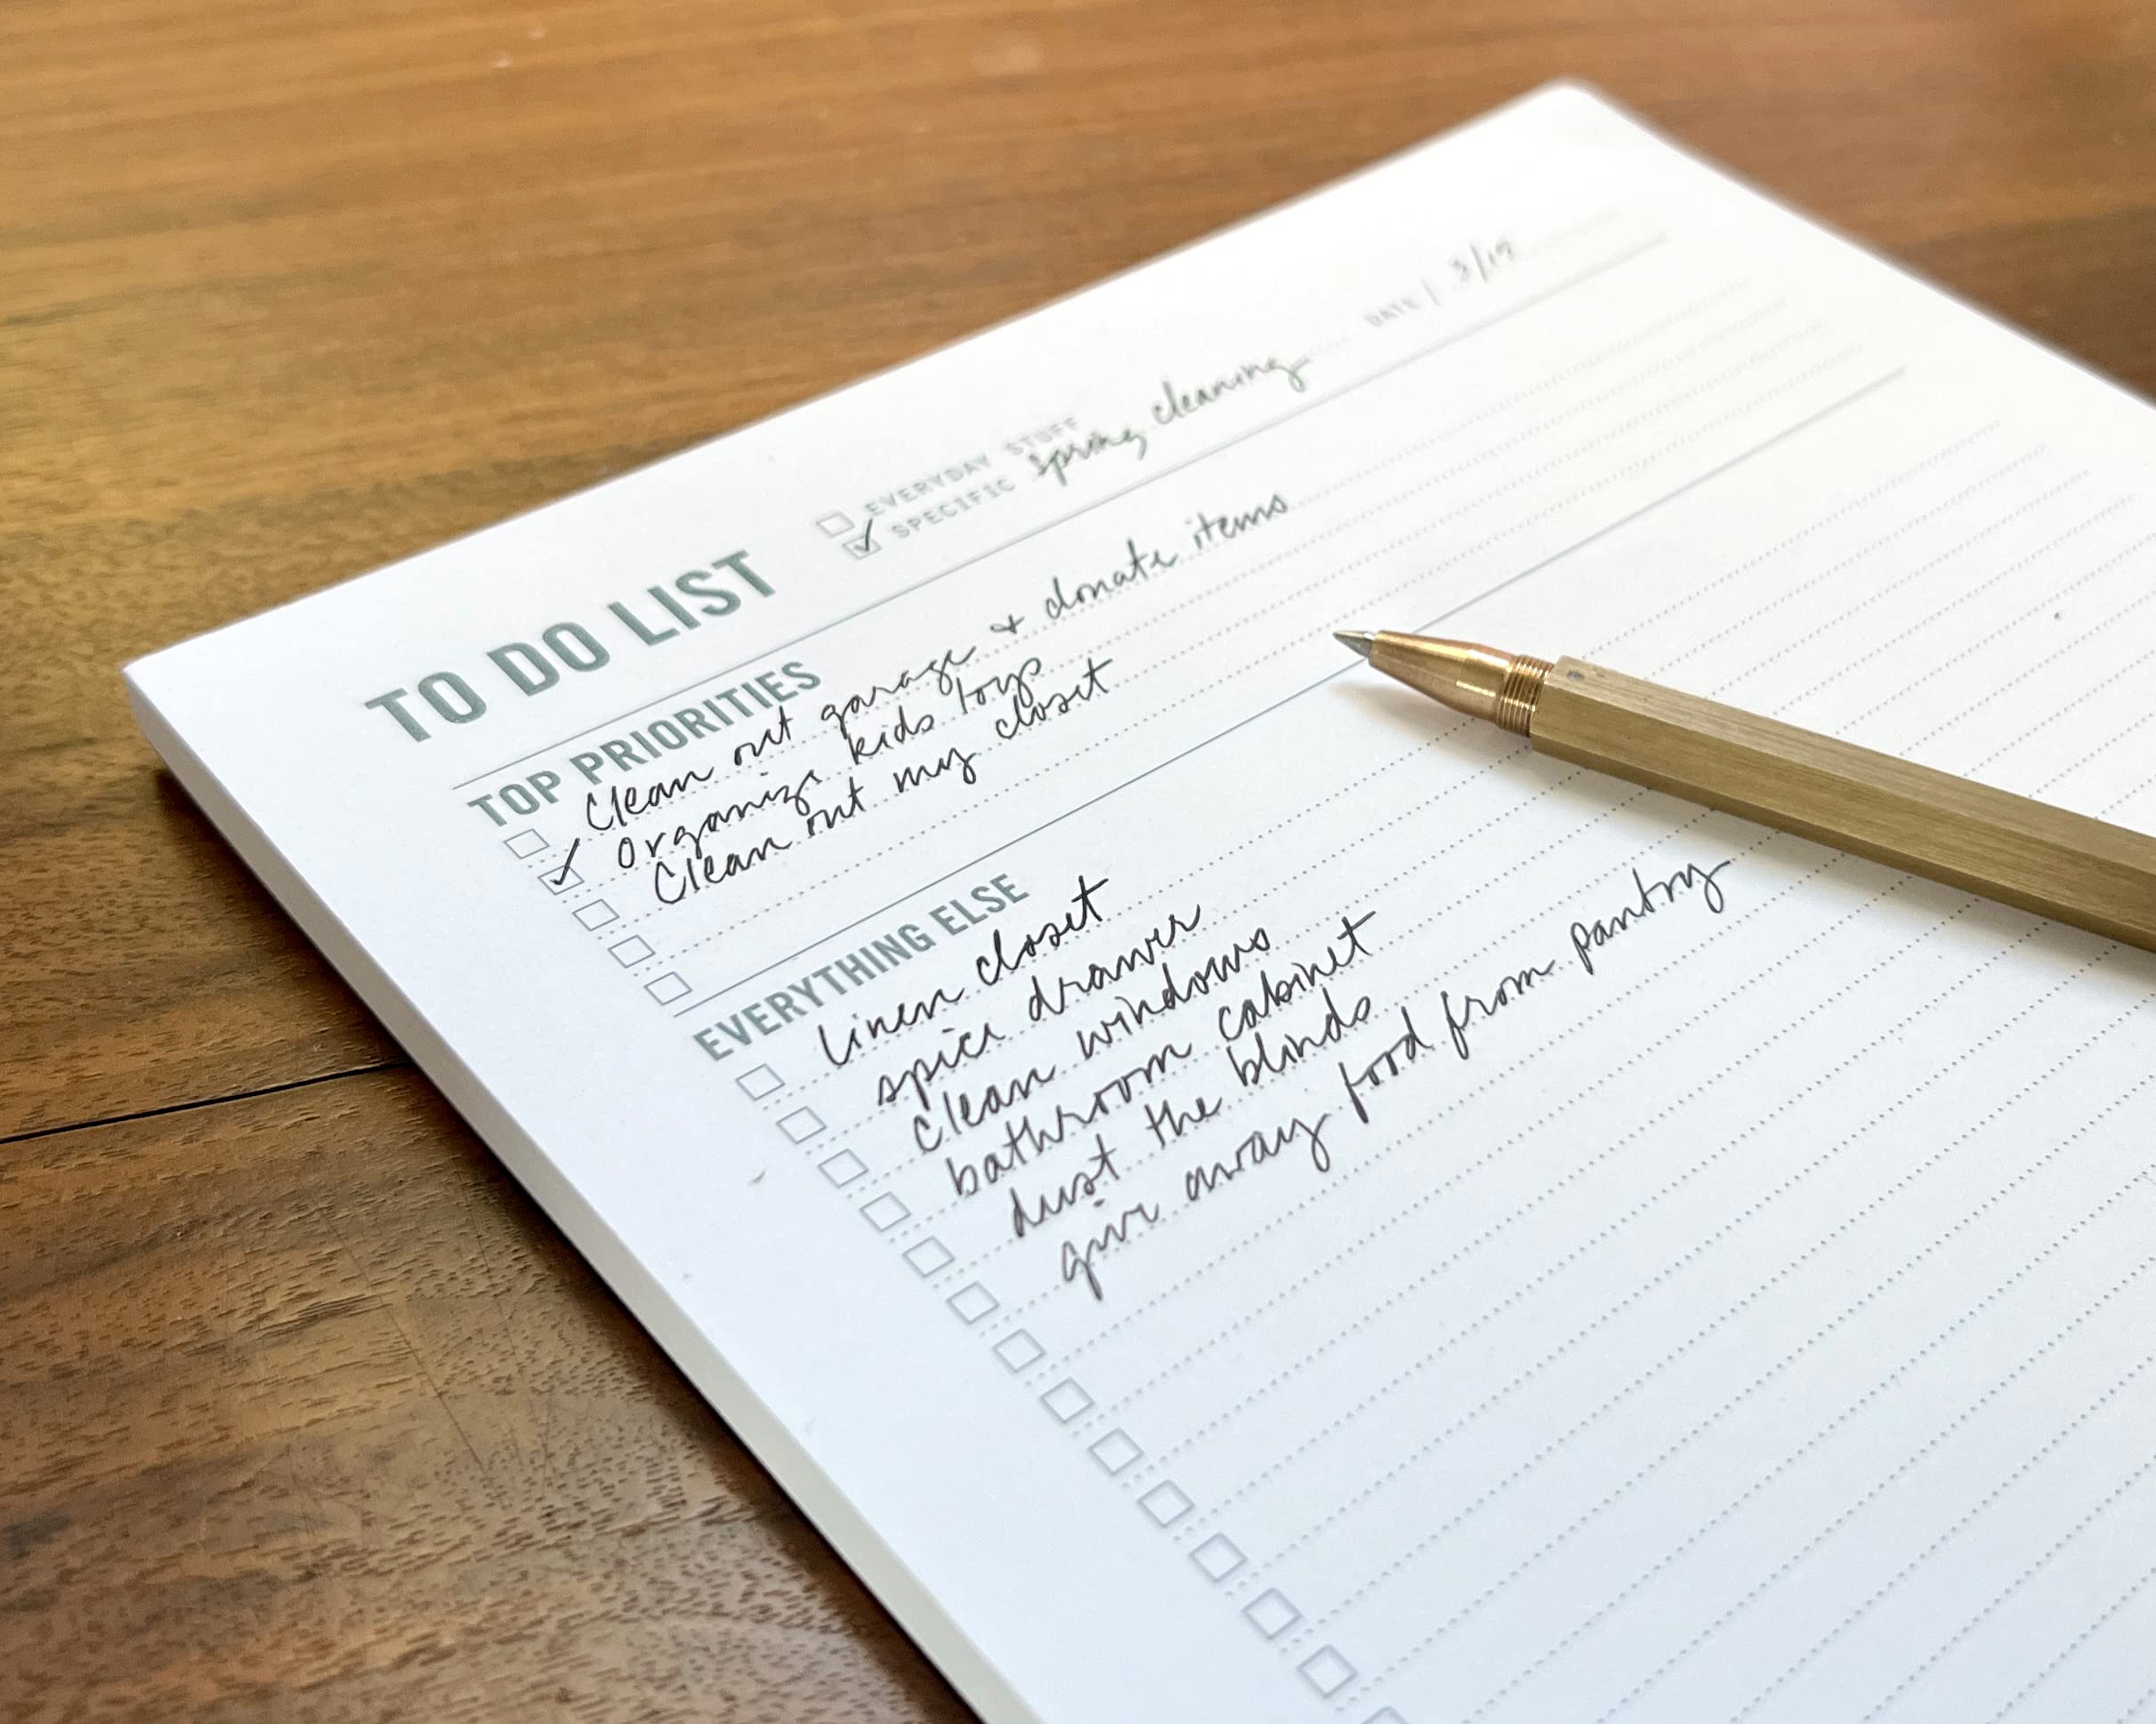 TO DO LIST
EVERYDAY STUFF
SPECIFIC spring cleaning
DATE
TOP PRIORITIES
Clean out garage & donate items
Organize kids toys
Clean out my closet
EVERYTHING ELSE
linen closet
spice drawer
clean windows
bathroom cabinet
dust the blinds
give away food from pantry